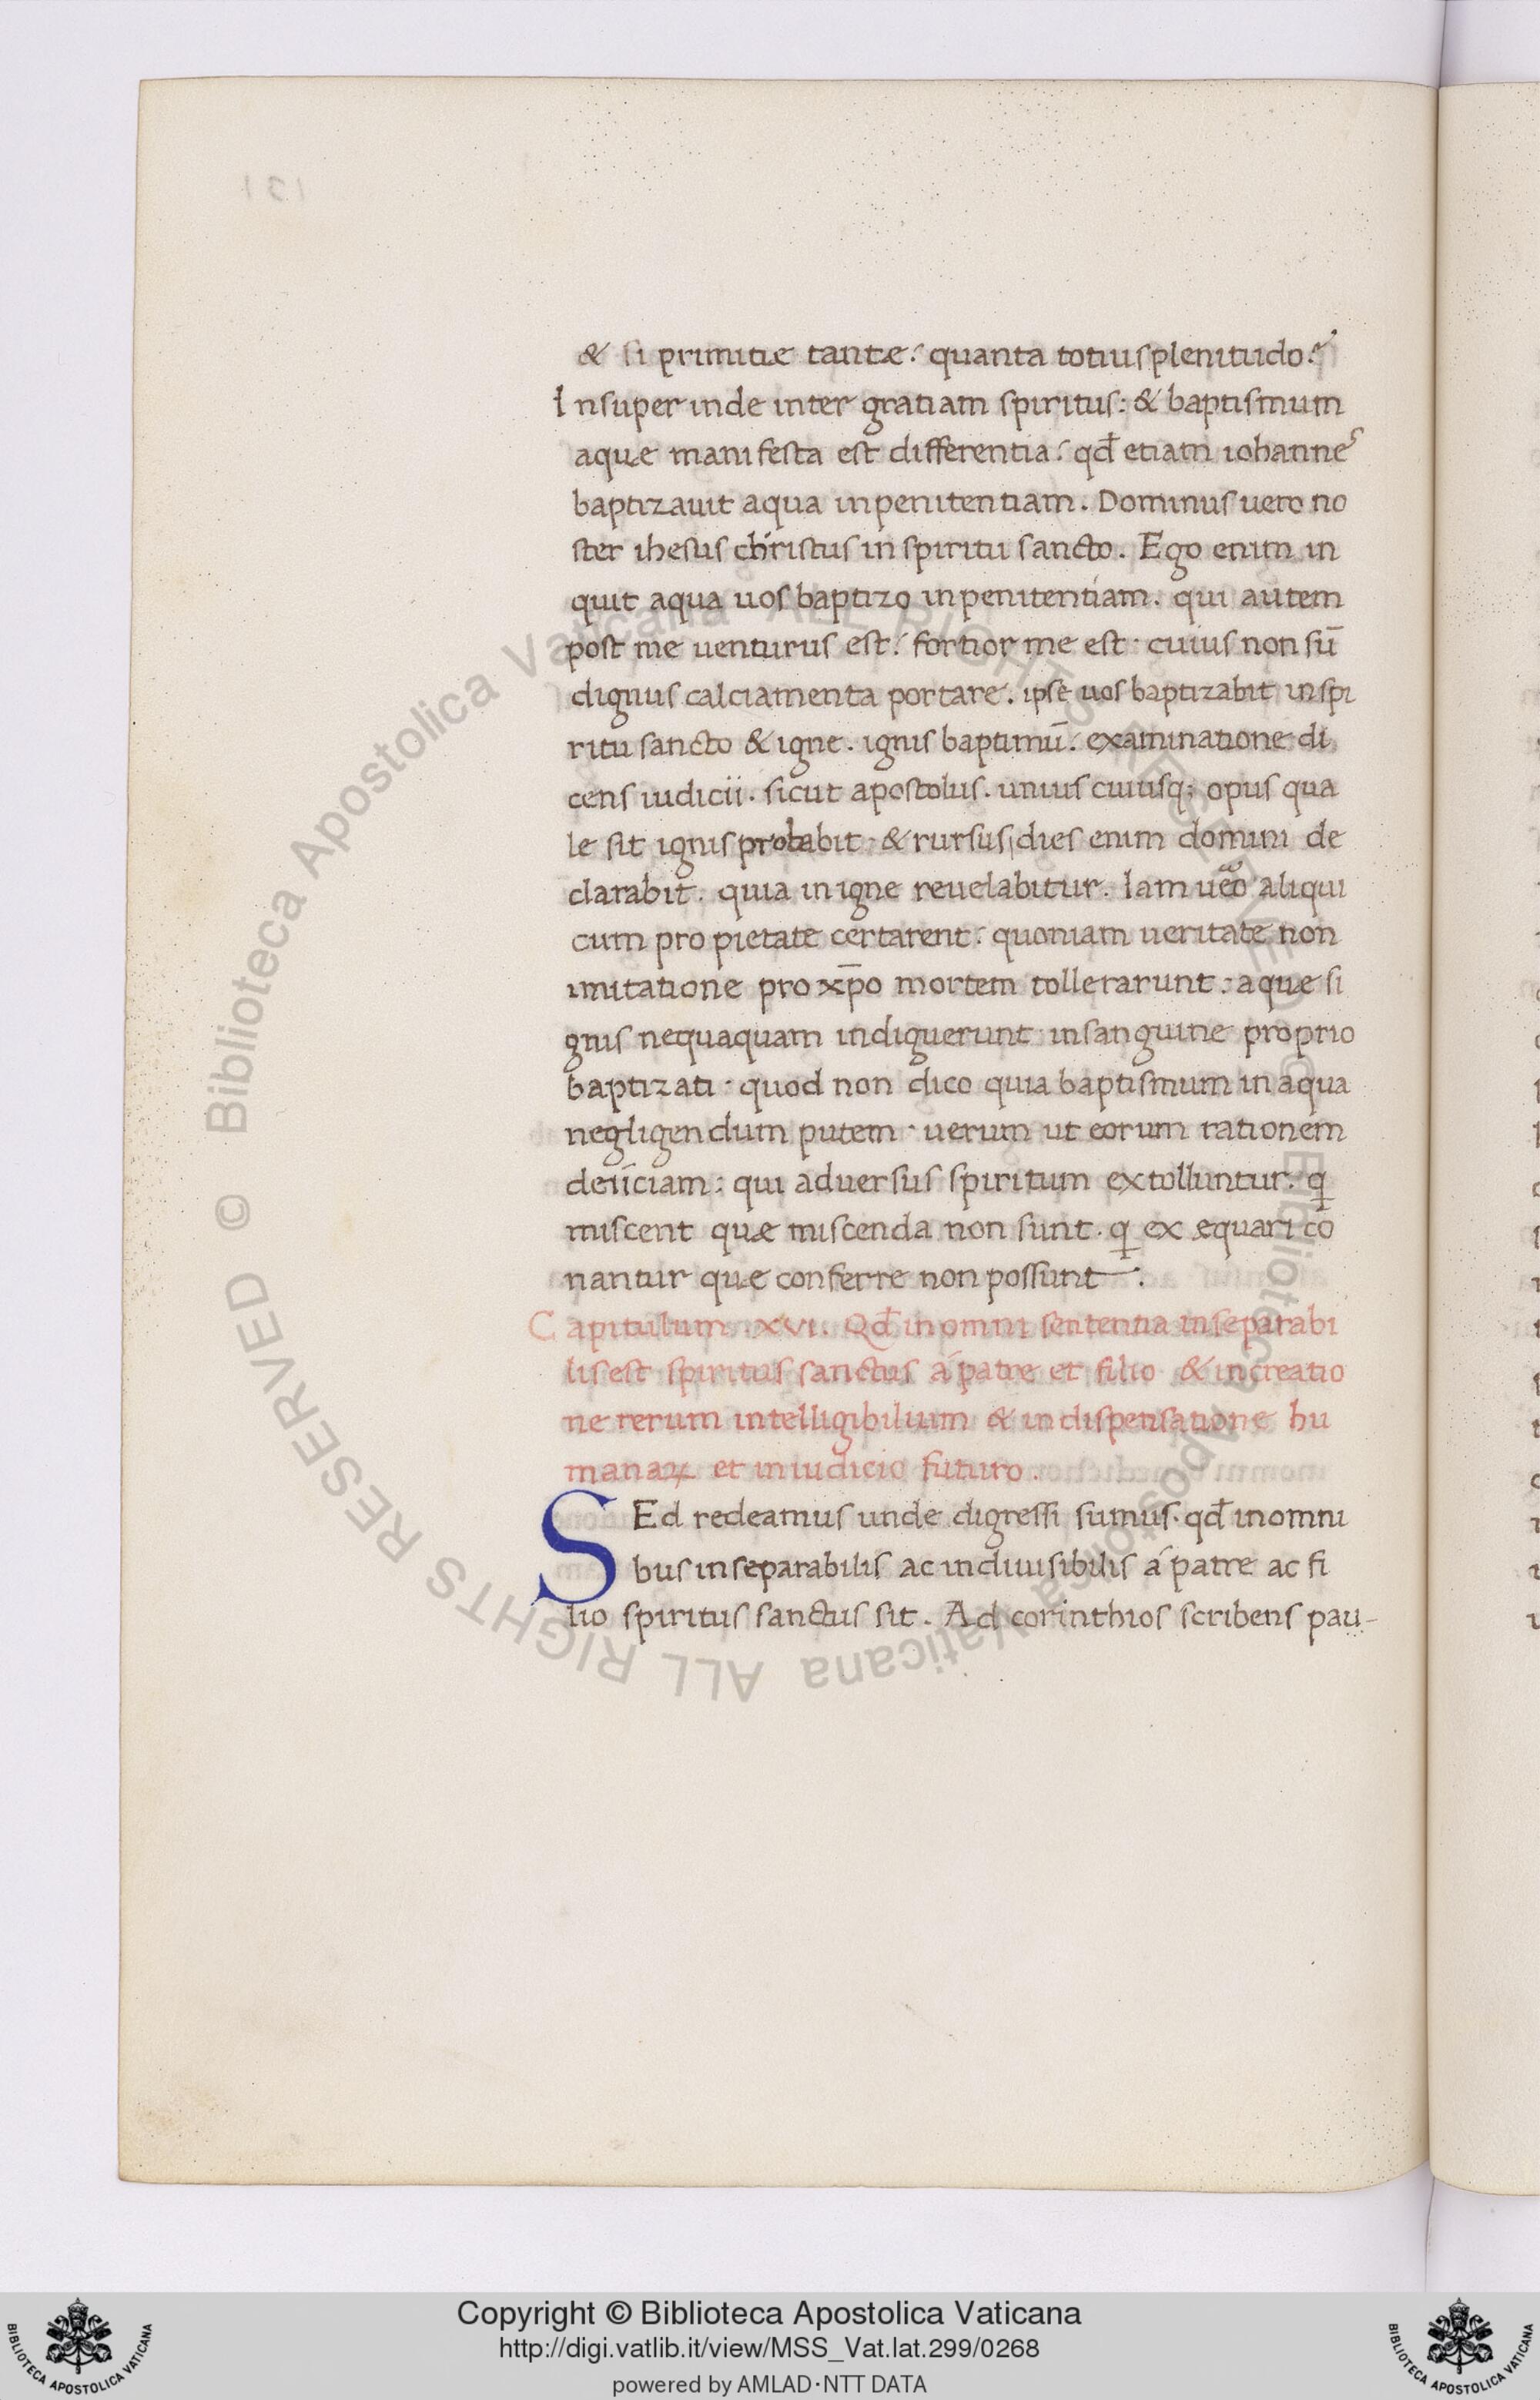 & si primitie tante: quanta totius plenitudo?
Insuper inde inter gratiam spiritus: & baptismum
aque manifesta est differentia: qđ etiam iohannes
baptizauit aqua in penitentiam. Dominus uero no
ster ihesus christus in spiritu sancto. Ego enim in
quit aqua uos baptizo in penitentiam. qui autem
post me uenturus est: fortior me est. cuius non sū
dignus calciamenta portare. ipse uos baptizabit in spi
ritu sancto & igne. ignis baptimū. examinatione di
cens iudicii. sicut apostolus. unius cuiusq; opus qua
le sit ignis probabit. & rursus dies enim domini de
clarabit. quia in igne reuelabitur. Iam uero aliqui
cum pro pietate certarent: quoniam ueritate non
imitatione pro xp̄o mortem tollerarunt. aque si
gnis nequaquam indiguerunt in sanguine proprio
baptizati. quod non dico quia baptismum in aqua
negligendum putem. uerum ut eorum rationem
deiiciam: qui aduersus spiritum extolluntur. q̄
miscent quæ miscenda non sunt. q̄ ex equari co
nantur que conferre non possunt.
Capitulum .xvi. Qđ in omni sententia inseparabi
lis est spiritus sanctus á patre et filio & in creatio
ne rerum intelligibilium & in dispensatione hu
manaꝝ et in iudicio futuro.
SEd redeamus unde digressi sumus. qđ in omni
bus inseparabilis ac indiuisibilis á patre ac fi
lio spiritus sanctus sit. Ad corinthios scribens pau-
Copyright © Biblioteca Apostolica Vaticana
http://digi.vatlib.it/view/MSS_Vat.lat.299/0268
powered by AMLAD·NTT DATA